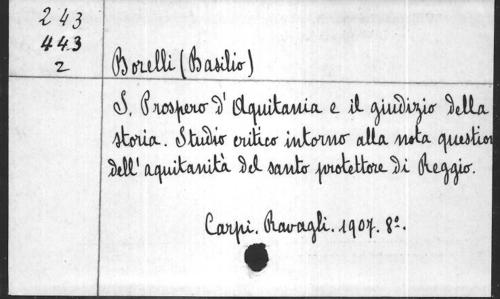 243
443
2
Borelli (Basilio)
S. Prospero d'Aquitania e il giudizio della
storia. Studio critico intorno alla nota question
dell'aquitanità del santo protettore di Reggio.
Carpi. Ravagli. 1907. 8º.